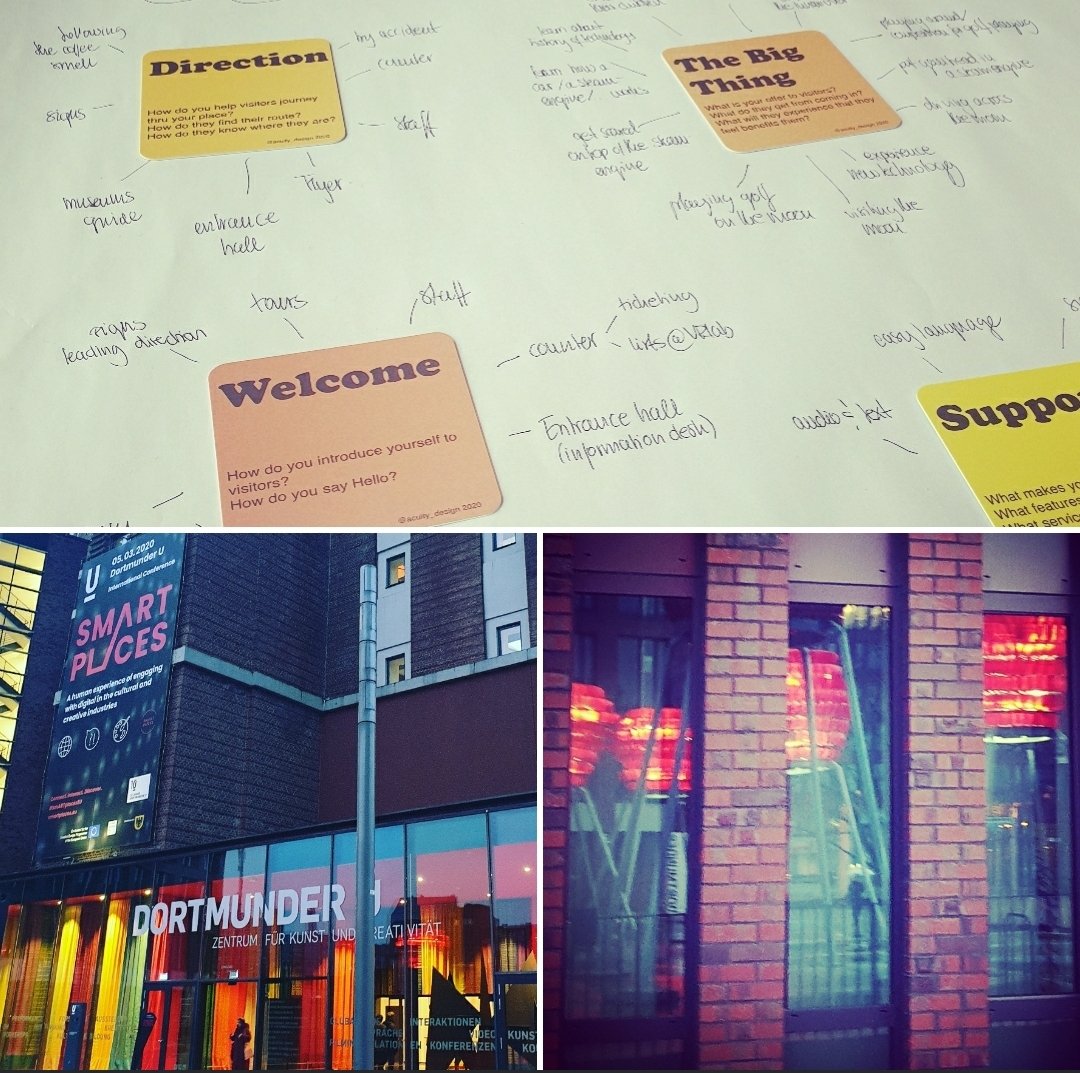 following
the coffee
smell
signs
museums
guide
entrance
hall
flyer
by accident
counter
staff
Direction
How do you help visitors journey
thru your place?
How do they find their route?
How do they know where they are?
@acuity_design 2020
learn about
history of technology
learn how a
car / a steam
engine/... works
get scared
on top of the steam
engine
playing golf
on the moon
visiting the
moon
experience
new technology
driving across
the moon
put coal
in a
steam engine
playing
The Big
Thing
What is your offer to visitors?
What do they get from coming in?
What will they experience that they
feel benefits them?
@acuity_design 2020
signs
leading direction
tours
staff
counter
ticketing
Entrance hall
(information desk)
Welcome
How do you introduce yourself to
visitors?
How do you say Hello?
@acuity_design 2020
easy language
audio & text
Suppo
What makes yo
What features
What servic
05.03.2020
Dortmunder U
International Conference
SMART
PLACES
A human experience of engaging
with digital in the cultural and
creative industries
Connect. Interact. Discover.
DORTMUNDER U
ZENTRUM FÜR KUNST UND KREATIVITÄT
INTERAKTIONEN
VIDEO
KUNST
KONFERENZEN
KO